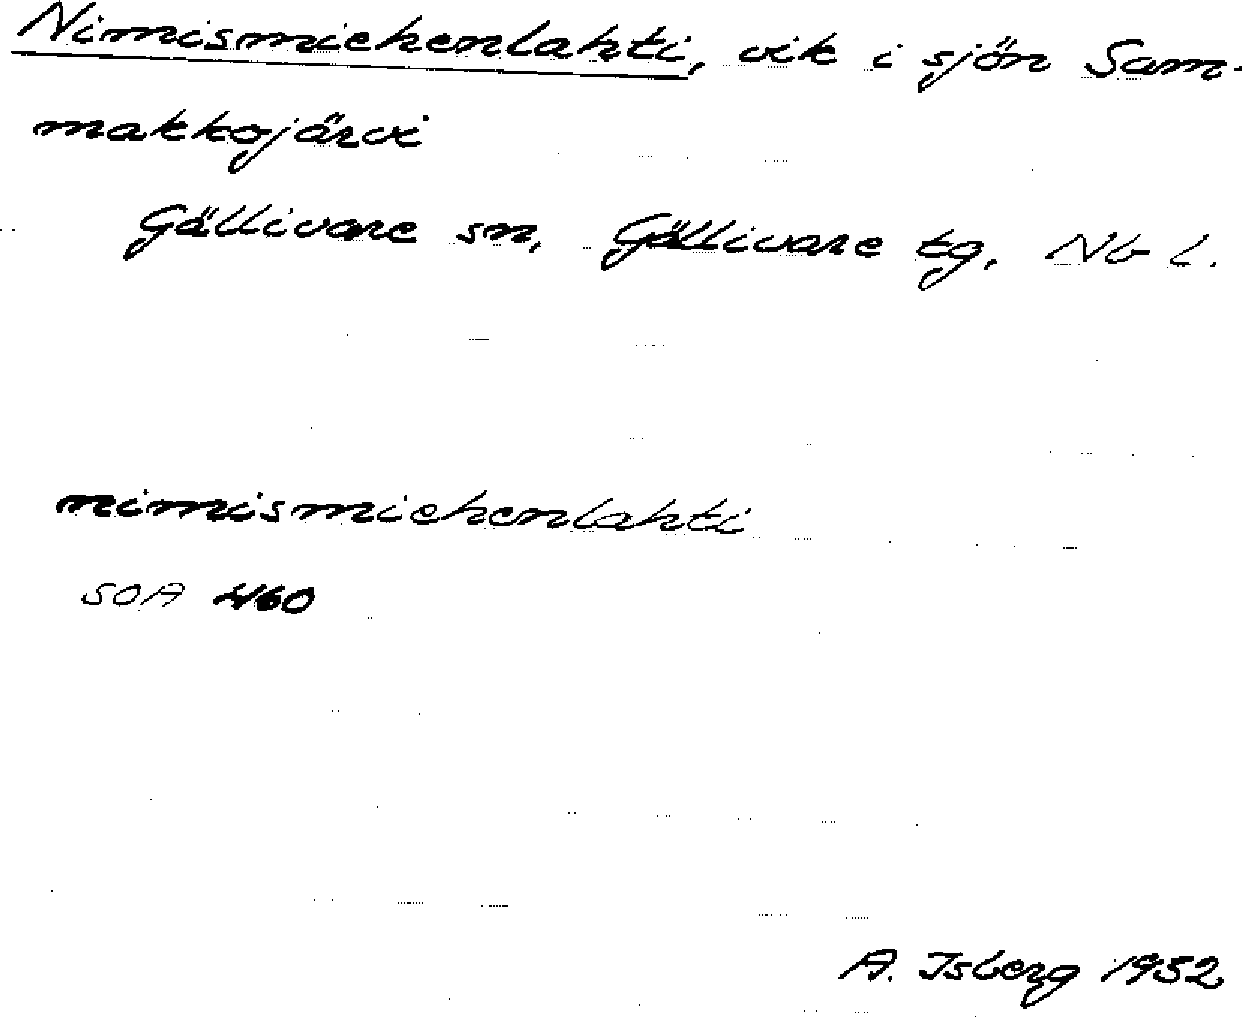 Nimismiehenlahti, vik i sjön Sam-
makkojärvi
Gällivare sn, Gällivare tg, Nb l.
nimismiehenlahti
SOA 460
A. Isberg 1952